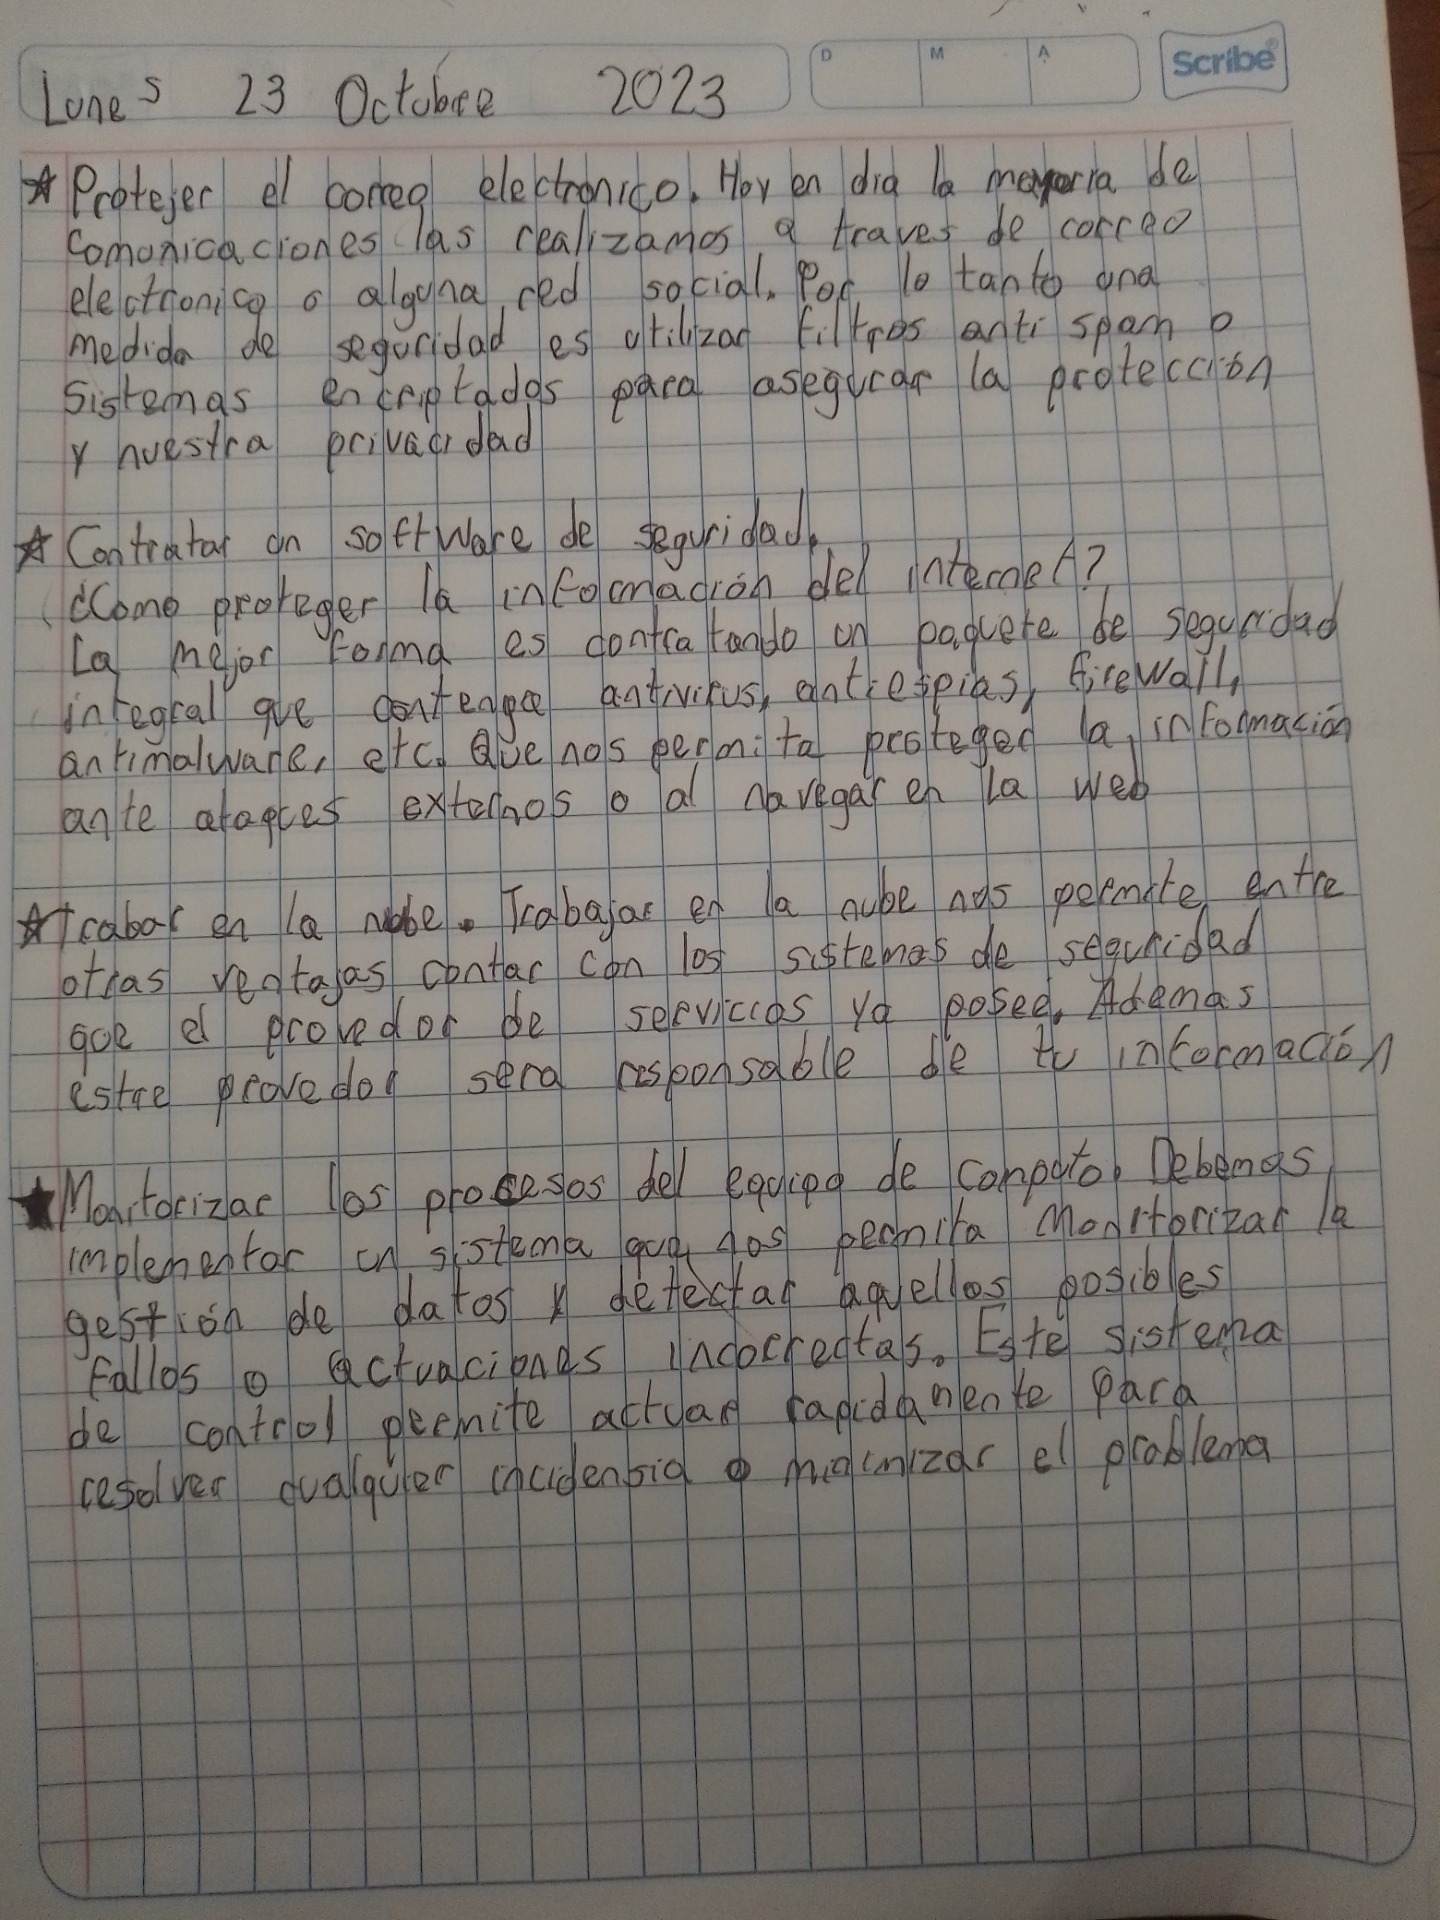 D M A Scribe®
Lunes 23 Octubre 2023
☆ Protejer el correo electronico. Hoy en dia la mayoria de
comunicaciones las realizamos a traves de correo
electronico o alguna red social. Por lo tanto una
medida de seguridad es utilizar filtros anti spam o
sistemas encriptados para asegurar la protección
y nuestra privacidad
☆ Contratar un software de seguridad.
¿Como proteger la información del internet?
La mejor forma es contratando un paquete de seguridad
integral que contenga antivirus, antiespias, firewall,
antimalware, etc. Que nos permita proteger la información
ante ataques externos o al navegar en la web
☆ Trabar en la nube. Trabajar en la nube nos permite entre
otras ventajas contar con los sistemas de seguridad
que el provedor de servicios ya posee. Ademas
estre provedor sera responsable de tu información
★ Monitorizar los procesos del equipo de computo. Debemos
implementar un sistema que nos permita Monitorizar la
gestión de datos y detectar aquellos posibles
fallos o actuaciones incorrectas. Este sistema
de control permite actuar rapidamente para
resolver cualquier incidensia o minimizar el problema